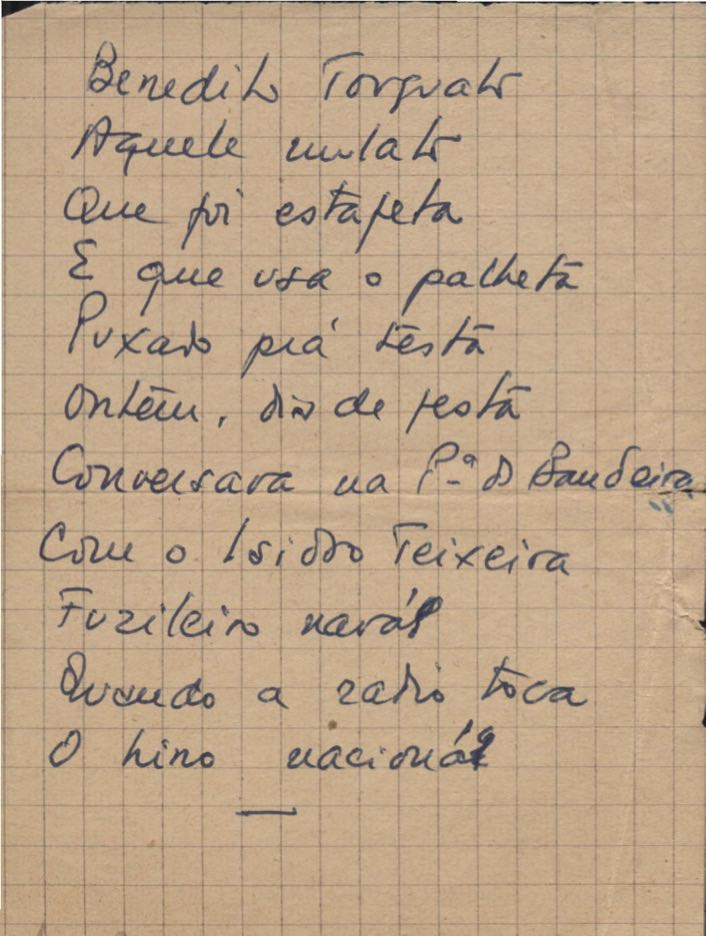 Benedito Torquato
Aquele mulato
Que foi estafeta
E que usa o palheta
Puxado prá testa
Ontem, dia de festa
Conversava na P.ª da Bandeira
Com o Isidro Teixeira
Fuzileiro navá
Quando a radio toca
O hino nacioná